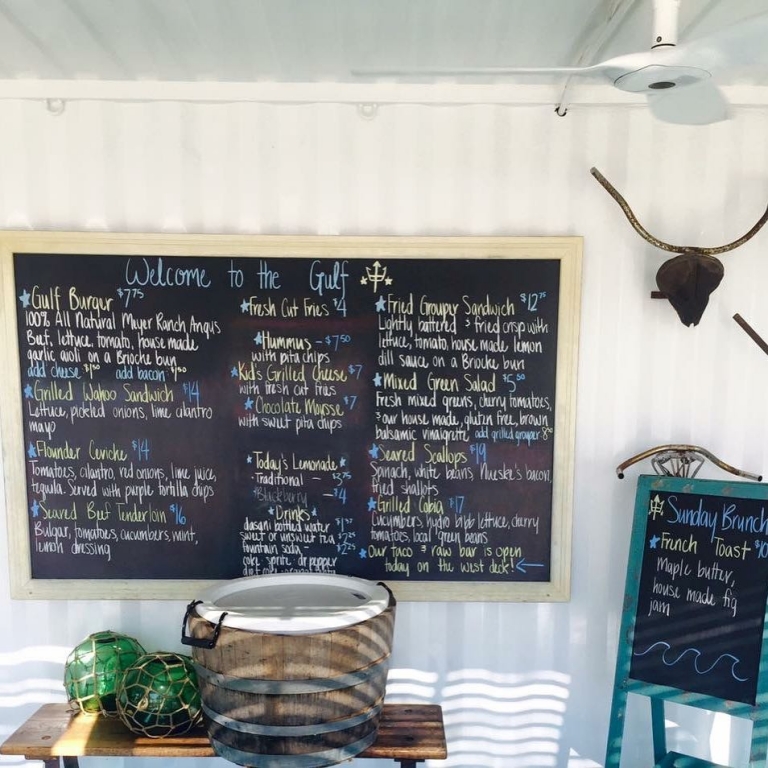 Welcome to the Gulf
Gulf Burger $7.75
100% All Natural Meyer Ranch Angus
Beef, lettuce, tomato, house made
garlic aioli on a Brioche bun
add cheese $1.50 add bacon $1.00
Grilled Wahoo Sandwich $14
Lettuce, pickled onions, lime cilantro
mayo
Flounder Ceviche $14
Tomatoes, cilantro, red onions, lime juice,
tequila. Served with purple tortilla chips
Seared Beef Tenderloin $16
Bulgar, tomatoes, cucumbers, mint,
lemon dressing
Fresh Cut Fries $4
Hummus - $7.50
with pita chips
Kid's Grilled Cheese $7
with fresh cut fries
Chocolate Mousse $7
with sweet pita chips
Today's Lemonade
-Traditional - $3.75
Blackberry - $4
Drinks
dasani bottled water
sweet or unsweet tea $2.25
fountain soda - $2.25
coke sprite dr pepper
Fried Grouper Sandwich $12.75
Lightly battered & fried crisp with
lettuce, tomato, house made lemon
dill sauce on a Brioche bun
Mixed Green Salad $5.50
Fresh mixed greens, cherry tomatoes,
& our house made, gluten free, brown
balsamic vinaigrette add grilled grouper
Seared Scallops $19
Spinach, white beans, Nueske's bacon,
fried shallots
Grilled Cobia $17
Cucumbers, hydro bibb lettuce, cherry
tomatoes, local green beans
Our taco & raw bar is open
today on the west deck!
Sunday Brunch
French Toast $10
maple butter,
house made fig
jam